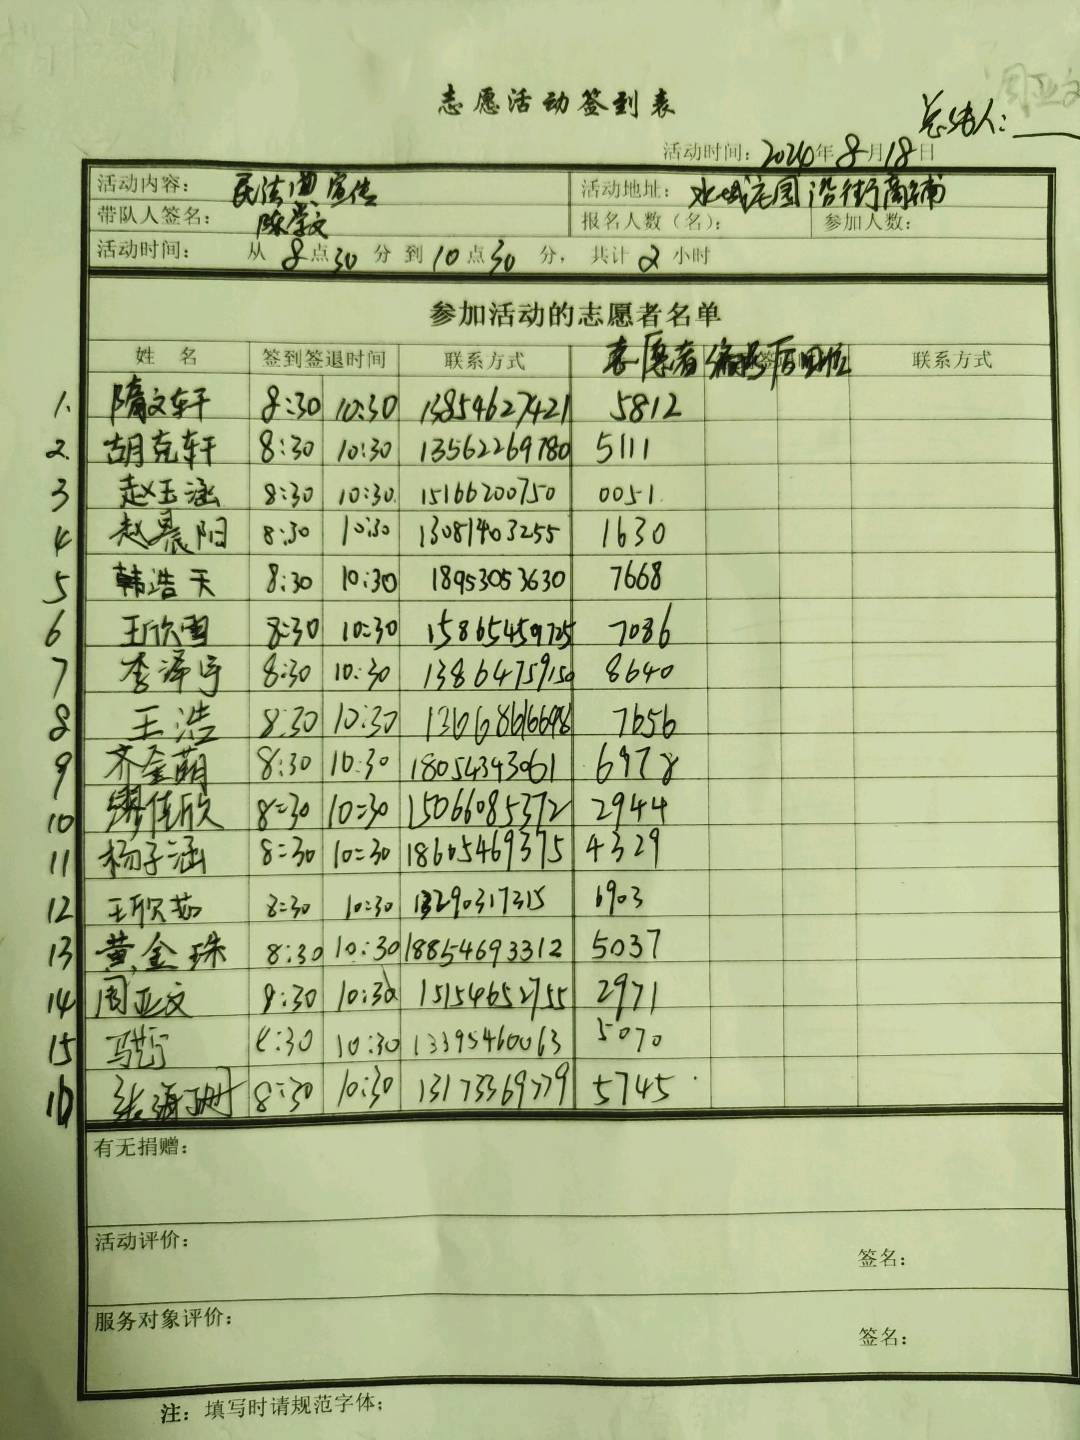 周亚文
志愿活动签到表
总结人:
活动时间: 2020年8月18日
活动内容: 民法典宣传 活动地址: 水城庄园沿街商铺
带队人签名: 陈学文 报名人数(名): 参加人数:
活动时间: 从8点30分到10点30分,共计2小时
参加活动的志愿者名单
姓 名 签到签退时间 联系方式 志愿者编号后四位 联系方式
1. 隋文轩 8:30 10:30 13854627421 5812
2. 胡克轩 8:30 10:30 13562269780 5111
3 赵玉涵 8:30 10:30 15166200750 0051
4 赵晨阳 8:30 10:30 13081403255 1630
5 韩浩天 8:30 10:30 18953053630 7668
6 王欣雪 8:30 10:30 15865459725 7086
7 李泽宇 8:30 10:30 13864759150 8640
8 王浩 8:30 10:30 7656
9 齐金萌 8:30 10:30 18054343061 6978
10 缪佳欣 8:30 10:30 15066085372 2944
11 杨子涵 8:30 10:30 18605469375 4329
12 王欣茹 8:30 10:30 13290317315 6903
13 黄金珠 8:30 10:30 18854693312 5037
14 周亚文 8:30 10:30 15154652755 2971
15 8:30 10:30 13395460063 5070
16 8:30 10:30 13173369779 5745
有无捐赠:
活动评价:
签名:
服务对象评价:
签名:
注:填写时请规范字体;